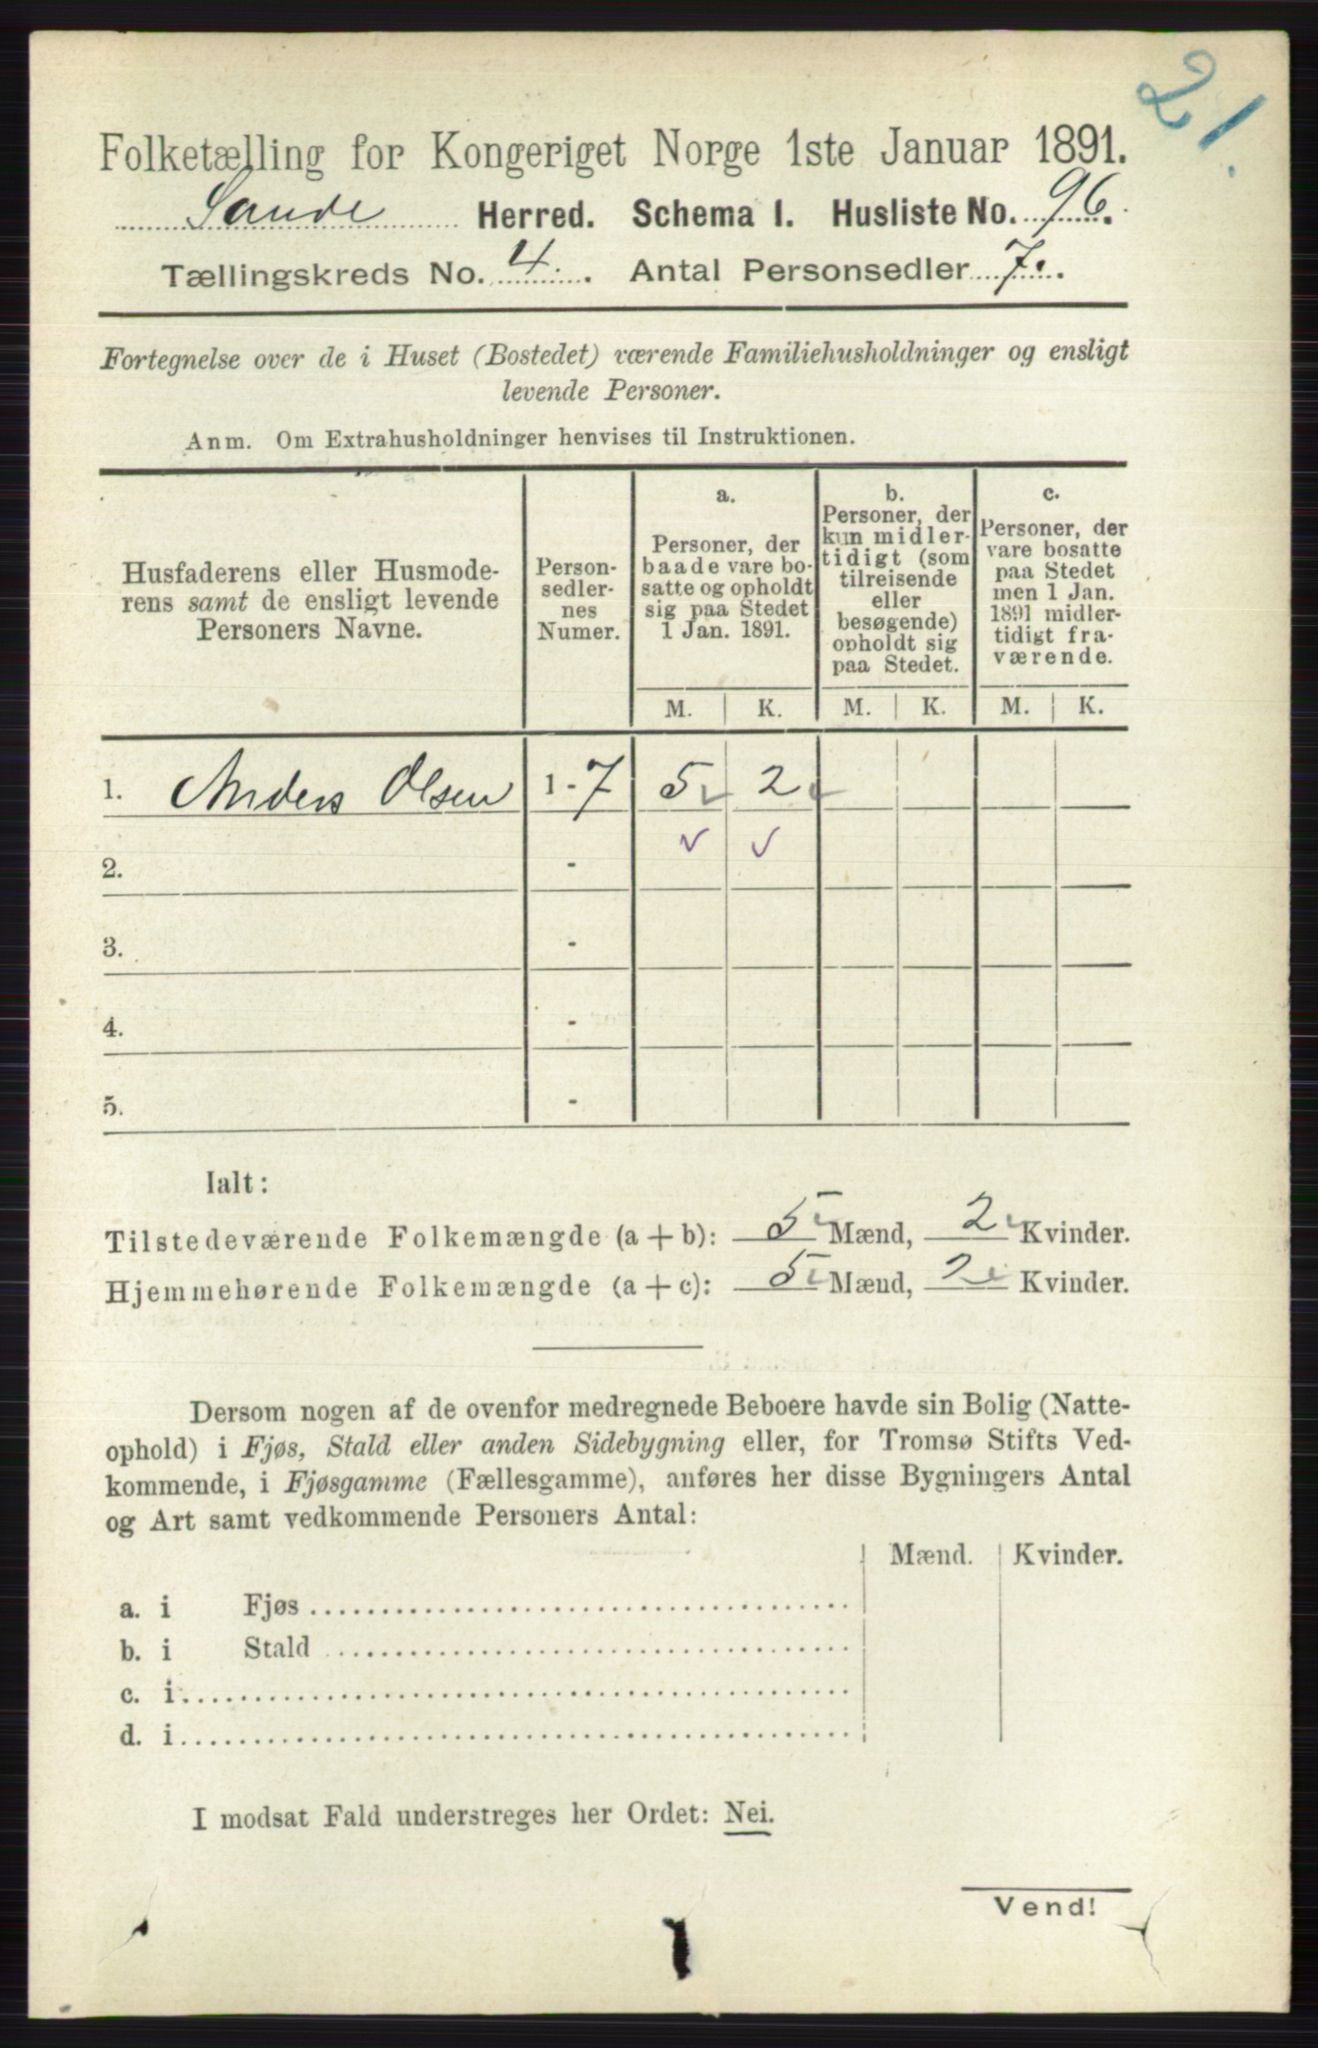 21.
Folketælling for Kongeriget Norge 1ste Januar 1891.
Sande Herred. Schema 1. Husliste No. 96.
Tællingskreds No. 4. Antal Personsedler 7.
Fortegnelse over de i Huset (Bostedet) værende Familiehusholdninger og ensligt
levende Personer.
Anm. Om Extrahusholdninger henvises til Instruktionen.
Husfaderens eller Husmode-
rens samt de ensligt levende
Personers Navne.
Person-
sedler-
nes
Numer.
a.
Personer, der
baade vare bo-
satte og opholdt
sig paa Stedet
1 Jan. 1891.
b.
Personer, der
kun midler-
tidigt (som
tilreisende
eller
besøgende)
opholdt sig
paa Stedet.
c.
Personer, der
vare bosatte
paa Stedet
men 1 Jan.
1891 midler-
tidigt fra-
værende.
M. K. M. K. M. K.
1. Anders Olsen 1-7 5 2
2. -
3. -
4. -
5. -
Ialt:
Tilstedeværende Folkemængde (a+b): 5 Mænd, 2 Kvinder.
Hjemmehørende Folkemængde (a+c): 5 Mænd, 2 Kvinder.
Dersom nogen af de ovenfor medregnede Beboere havde sin Bolig (Natte-
ophold) i Fjøs, Stald eller anden Sidebygning eller, for Tromsø Stifts Ved-
kommende, i Fjøsgamme (Fællesgamme), anføres her disse Bygningers Antal
og Art samt vedkommende Personers Antal:
Mænd. Kvinder.
a. i Fjøs
b. i Stald
c. i
d. i
I modsat Fald understreges her Ordet: Nei.
Vend!